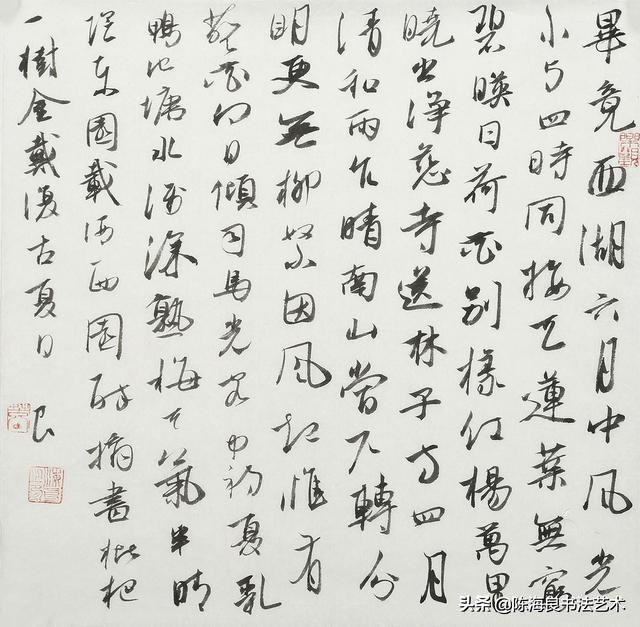 畢竟西湖六月中风光
不与四時同接天蓮葉無窮
碧暎日荷花别樣红楊萬里
曉出淨慈寺送林子方四月
清和雨乍晴南山當户轉分
明更無柳絮因风起惟有
葵花向日傾司馬光客中初夏乳
鴨池塘水淺深熟梅天氣半晴
陰东園載酒西園醉摘盡枇杷
一樹金戴復古夏日
良
头条 @陈海良书法艺术